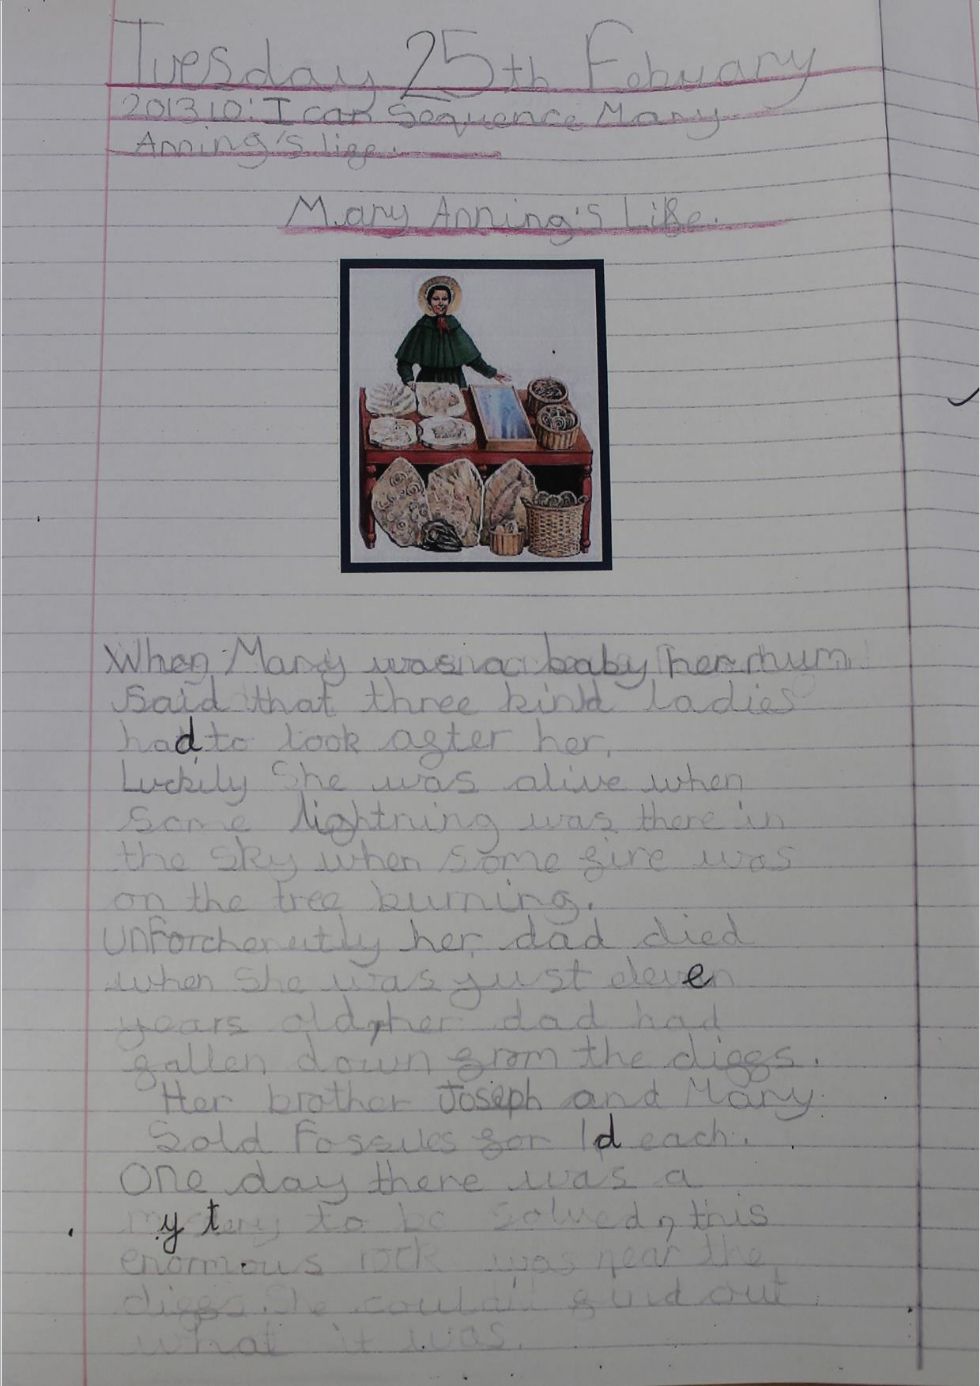 Tuesday 25th Febuary
2013 LO: I can Sequence Mary
Anning's life.
Mary Anning's Life.
When Mary was a baby her mum
said that three kind ladies
had to look after her.
Luckily She was alive when
some lightning was there in
the sky when some fire was
on the tree burning.
Unforchenutly her dad died
when She was just eleven
years old, her dad had
fallen down from the diggs.
Her brother Joseph and Mary
Sold Fossiles for 1d each.
One day there was a
mystery to be solved, this
enormous rock was near the
diggs. She could'nt find out
what it was.